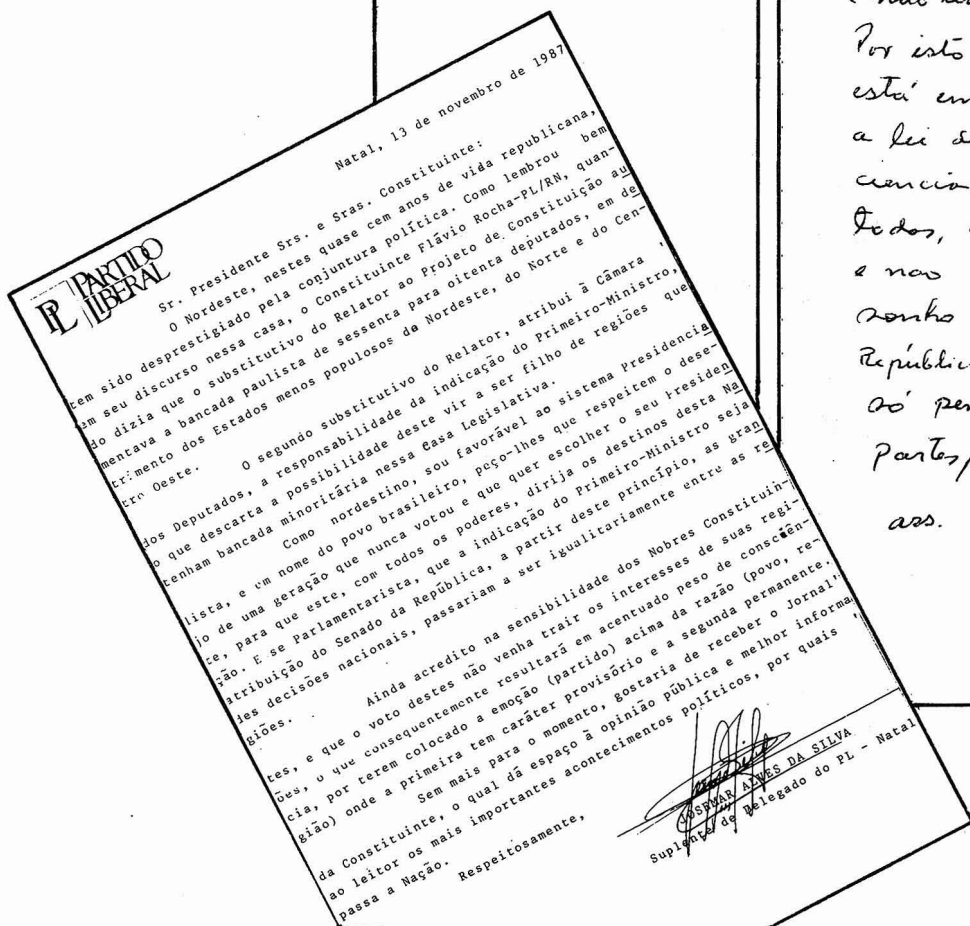 PL PARTIDO
LIBERAL
Natal, 13 de novembro de 1987
Sr. Presidente Srs. e Sras. Constituinte:
O Nordeste, nestes quase cem anos de vida republicana,
tem sido desprestigiado pela conjuntura política. Como lembrou bem
em seu discurso nessa casa, o Constituinte Flávio Rocha-PL/RN, quan-
do dizia que o substitutivo do Relator ao Projeto de Constituição au
mentava a bancada paulista de sessenta para oitenta deputados, em de
trimento dos Estados menos populosos do Nordeste, do Norte e do Cen-
tro Oeste.
O segundo substitutivo do Relator, atribui à Câmara
dos Deputados, a responsabilidade da indicação do Primeiro-Ministro,
o que descarta a possibilidade deste vir a ser filho de regiões que
tenham bancada minoritária nessa Casa Legislativa.
Como nordestino, sou favorável ao sistema Presidencia
lista, e em nome do povo brasileiro, peço-lhes que respeitem o dese-
jo de uma geração que nunca votou e que quer escolher o seu Presiden
te, para que este, com todos os poderes, dirija os destinos desta Na
ção. E se Parlamentarista, que a indicação do Primeiro-Ministro seja
atribuição do Senado da República, a partir deste princípio, as gran
des decisões nacionais, passariam a ser igualitariamente entre as re
giões.
Ainda acredito na sensibilidade dos Nobres Constituin-
tes, e que o voto destes não venha trair os interesses de suas regi-
ões, o que consequentemente resultará em acentuado peso de consciên-
cia, por terem colocado a emoção (partido) acima da razão (povo, re-
gião) onde a primeira tem caráter provisório e a segunda permanente.
Sem mais para o momento, gostaria de receber o Jornal'
da Constituinte, o qual dá espaço à opinião pública e melhor informa
ao leitor os mais importantes acontecimentos políticos, por quais '
passa a Nação.
Respeitosamente,
JOSEMAR ALVES DA SILVA
Suplente de Delegado do PL - Natal
Por isto
está em
a lei
ciencia
todos,
e nao
sonho
República
só per
Partes
ass.